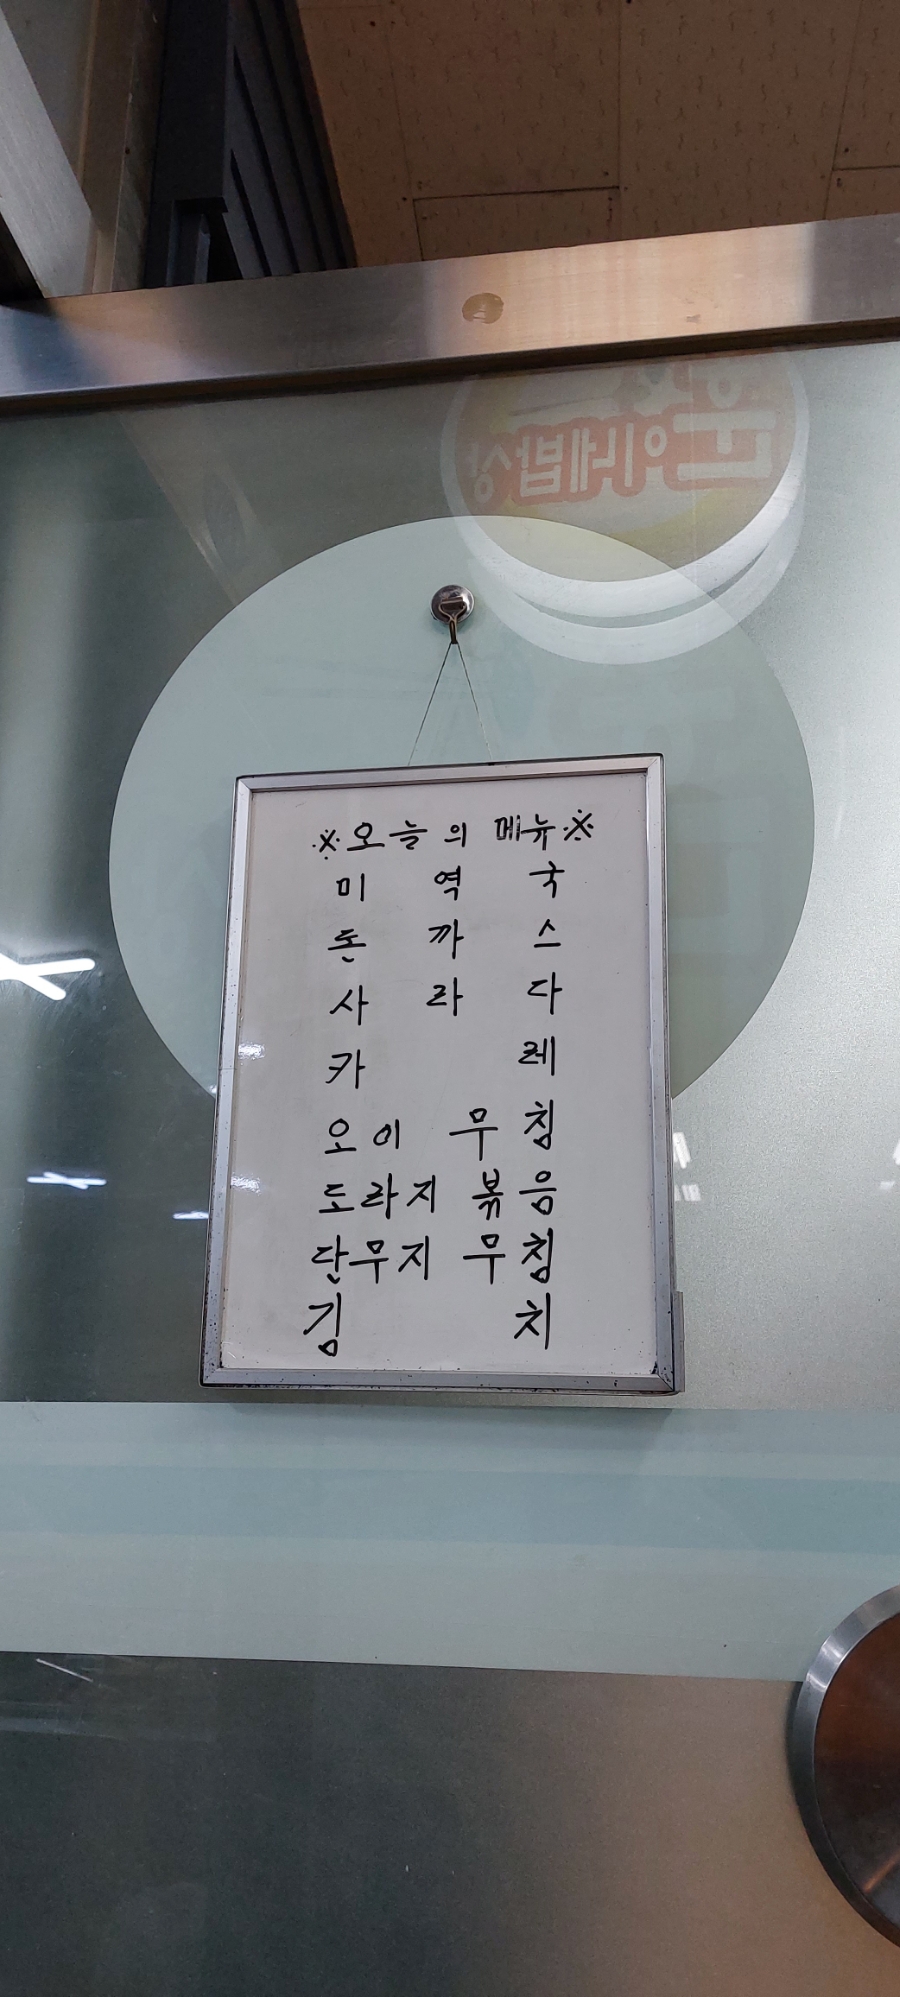 ※오늘의 메뉴※
미역국
돈까스
사라다
카레
오이 무침
도라지 볶음
단무지 무침
김치